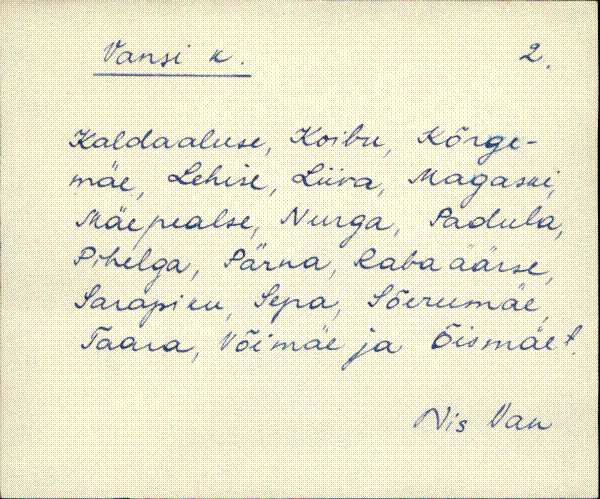 Vansi k. 2.
Kaldaaluse, Koibu, Kõrge-
mäe, Lehise, Liiva, Magaski,
Mäepealse, Nurga, Padula,
Pihelga, Pärna, Rabaäärse,
Sarapiku, Sepa, Sõerumäe,
Taara, Võimäe ja Õismäet.
Nis Van